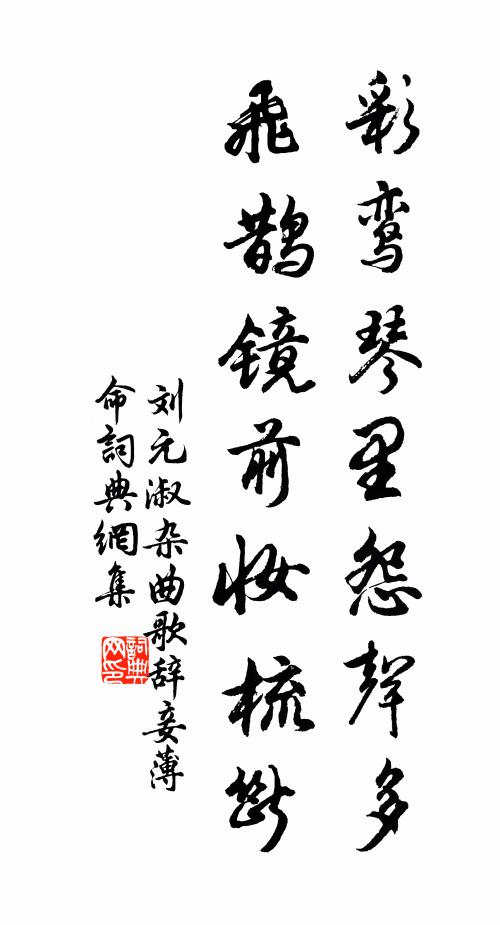 彩鸾琴里怨聲多
飛鹊镜前妆梳断
刘元淑杂曲歌辞妾薄
命詞典網集
詞典网印